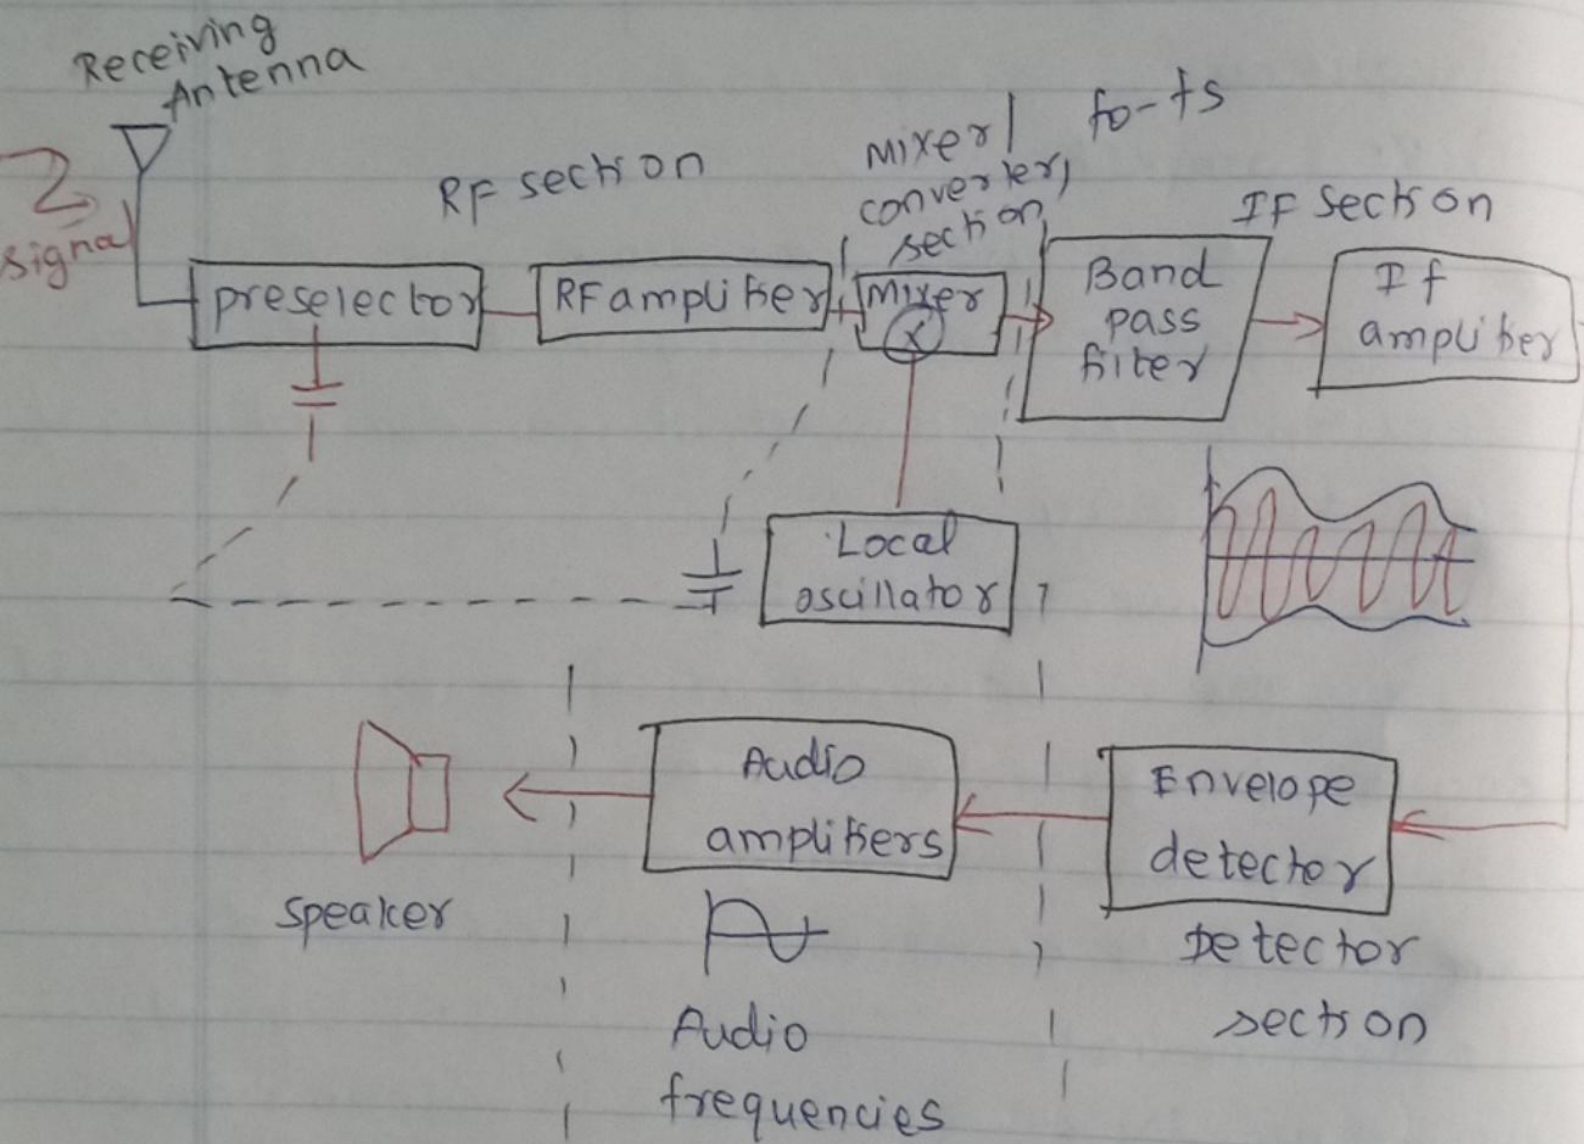 Receiving
Antenna
signal
RF section
Mixer/
converter,
section
fo-fs
IF section
preselector
RF amplifier
Mixer
X
Band
pass
filter
If
amplifier
Local
oscillator
Audio
amplifiers
Envelope
detector
speaker
Detector
section
Audio
frequencies